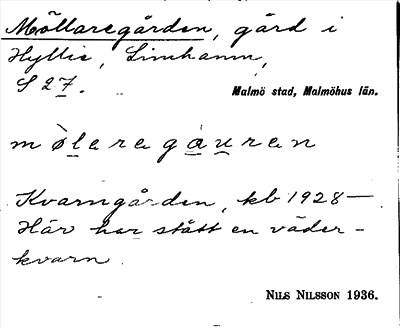 Möllaregården, gård i
Hyllie, Limhamn,
S 27.
Malmö stad, Malmöhus län.
møleregauren
Kvarngården, kb 1928—.
Här har stått en väder-
kvarn.
NILS NILSSON 1936.